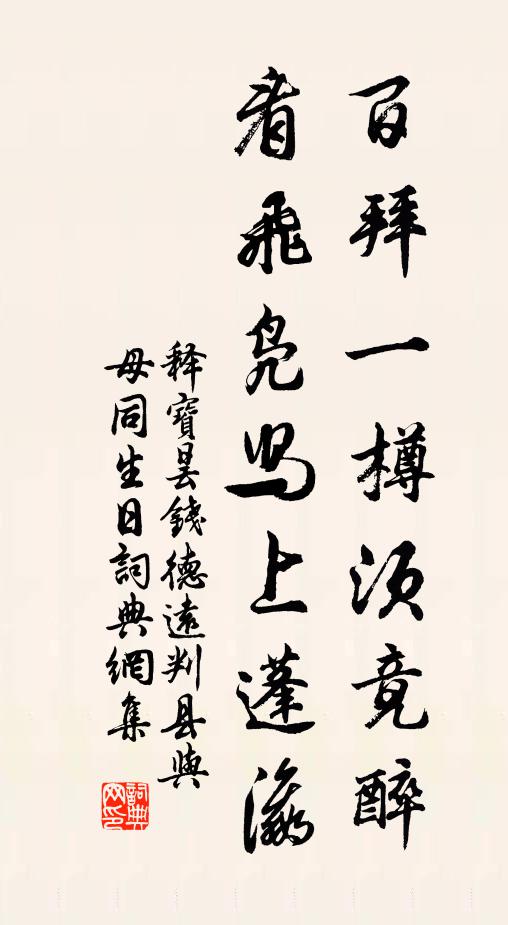 百拜一樽须竟醉
看飛凫舄上蓬瀛
释寶昙錢德遠判县與
母同生日詞典網集
詞典网印